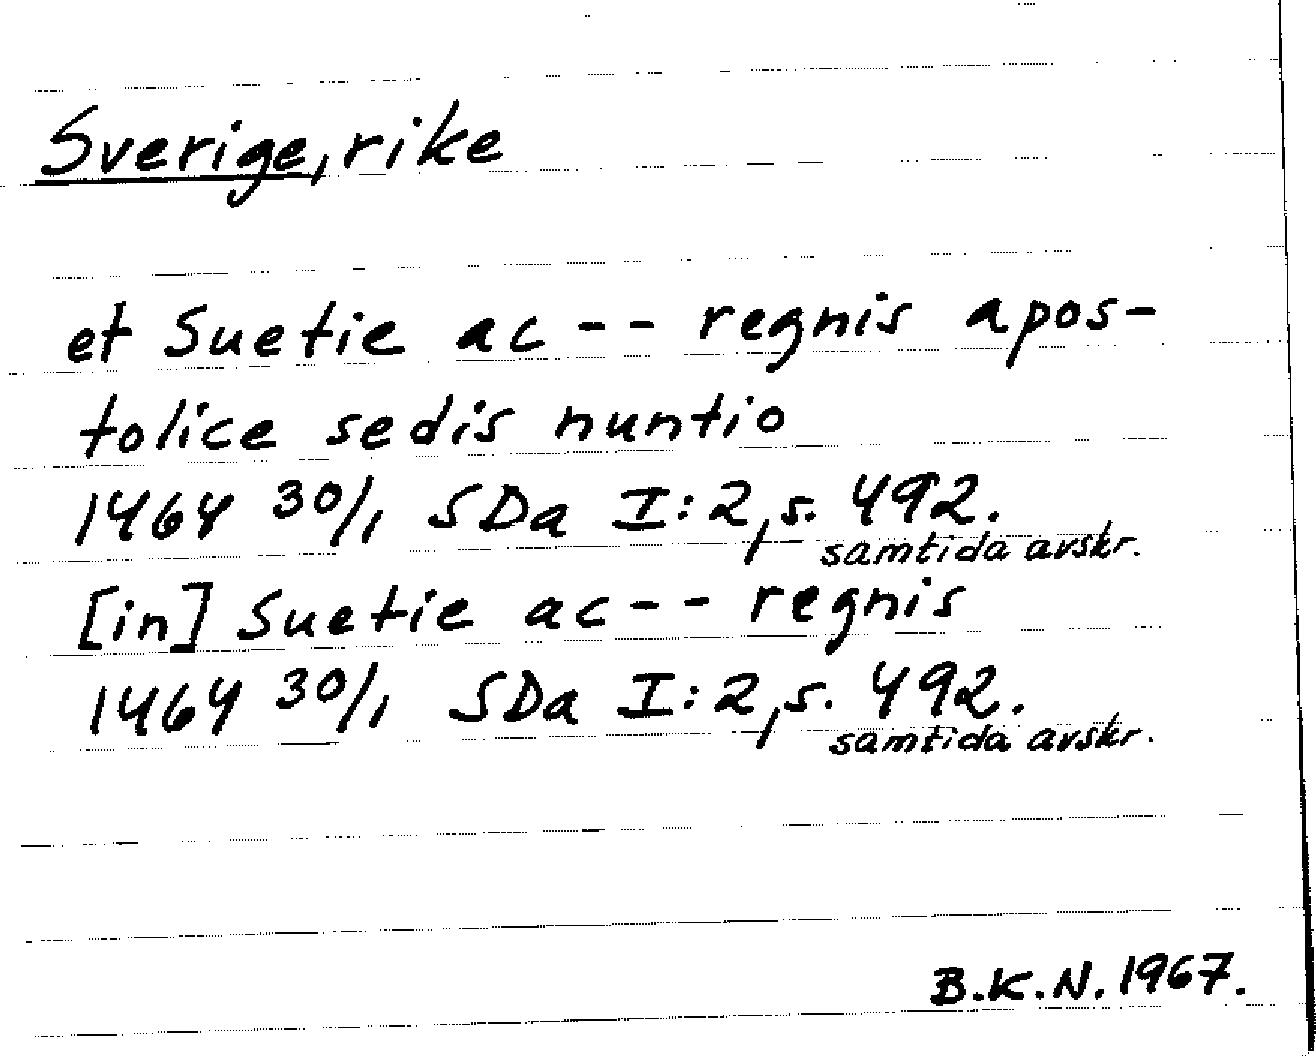 Sverige, rike
et Suetie ac -- regnis apos-
tolice sedis nuntio
1464 30/1 SDa I:2, s. 492.
samtida avskr.
[in] Suetie ac -- regnis
1464 30/1 SDa I:2, s. 492.
samtida avskr.
B.K.N. 1967.